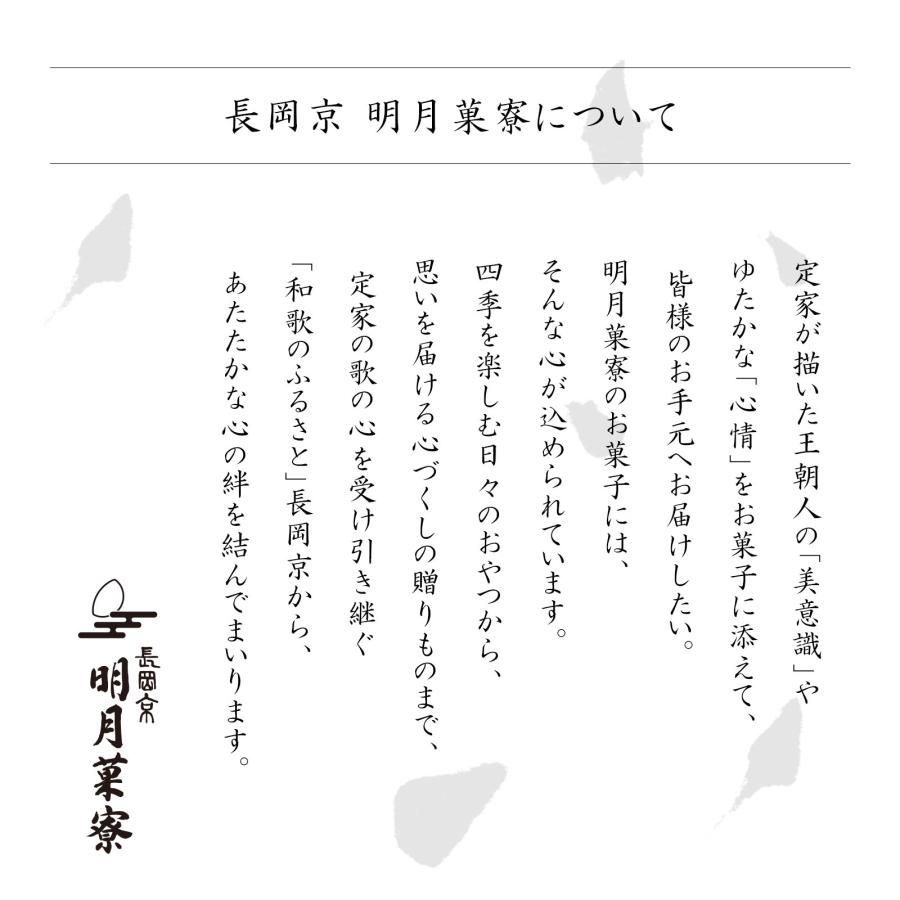 長岡京 明月菓寮について
定家が描いた王朝人の「美意識」や
ゆたかな「心情」をお菓子に添えて、
皆様のお手元へお届けしたい。
明月菓寮のお菓子には、
そんな心が込められています。
四季を楽しむ日々のおやつから、
思いを届ける心づくしの贈りものまで、
定家の歌の心を受け引き継ぐ
「和歌のふるさと」長岡京から、
あたたかな心の絆を結んでまいります。
長岡京
明月菓寮